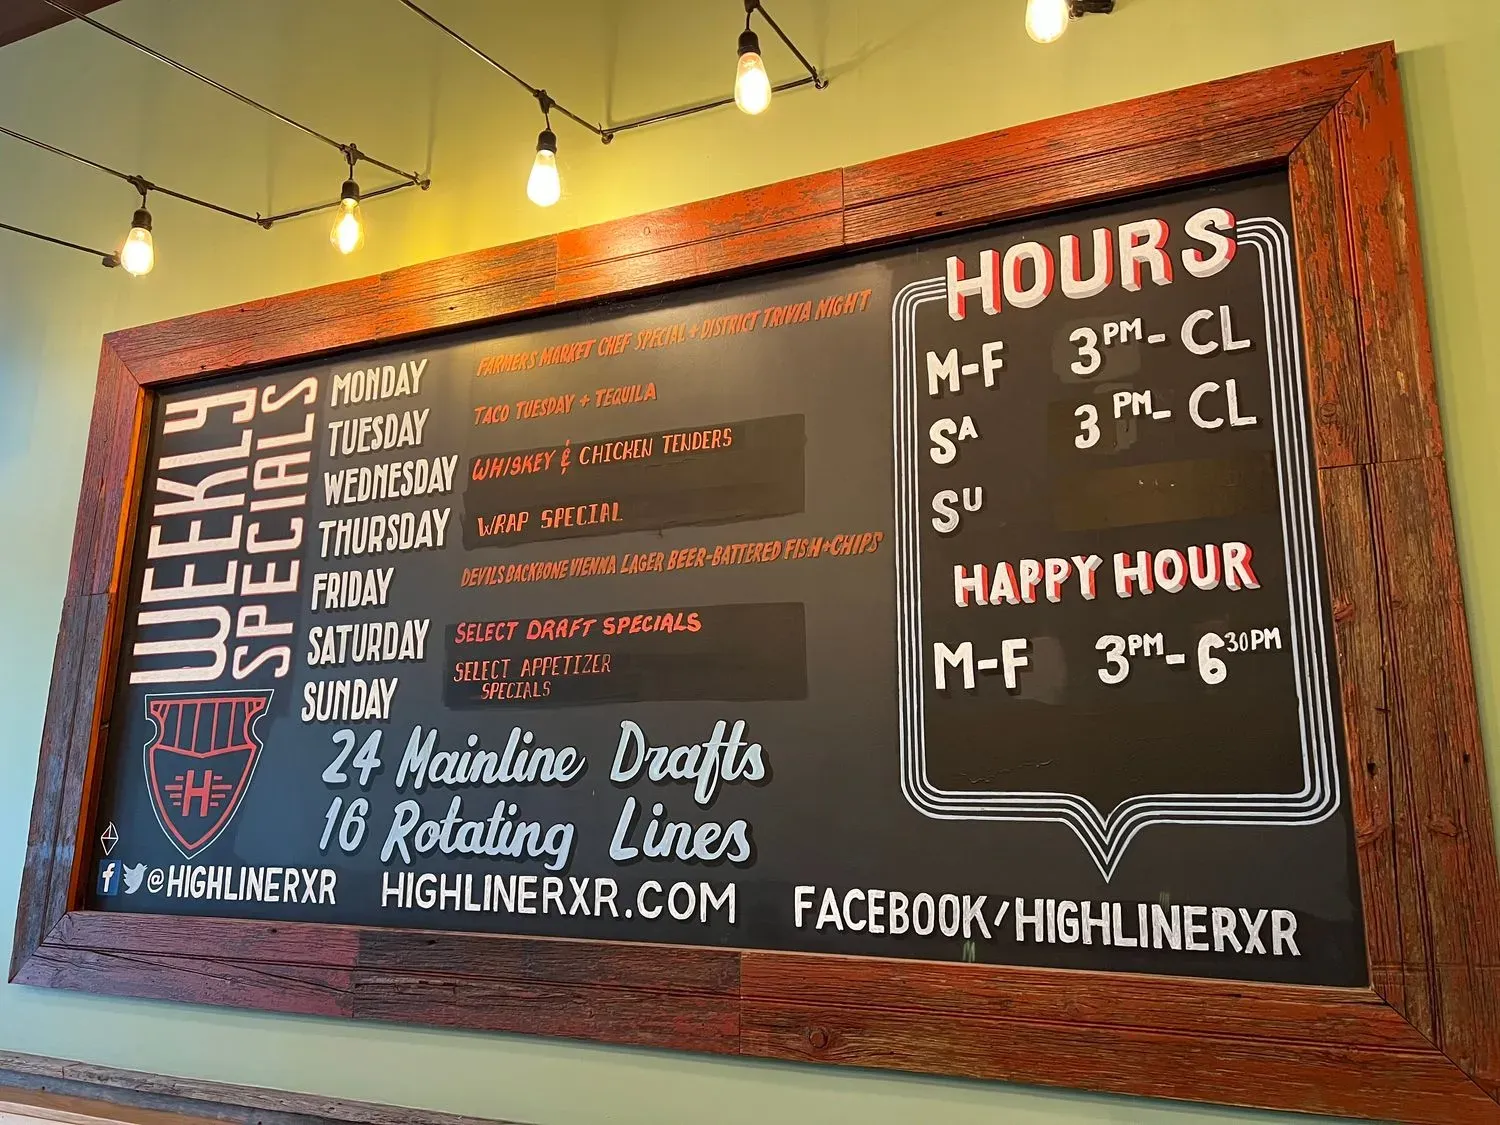 WEEKLY
SPECIALS
MONDAY FARMERS MARKET CHEF SPECIAL + DISTRICT TRIVIA NIGHT
TUESDAY TACO TUESDAY + TEQUILA
WEDNESDAY WHISKEY & CHICKEN TENDERS
THURSDAY WRAP SPECIAL
FRIDAY DEVILS BACKBONE VIENNA LAGER BEER-BATTERED FISH + CHIPS
SATURDAY SELECT DRAFT SPECIALS
SUNDAY SELECT APPETIZER
SPECIALS
24 Mainline Drafts
16 Rotating Lines
H
f @HIGHLINERXR
HIGHLINERXR.COM
FACEBOOK/HIGHLINERXR
HOURS
M-F 3PM- CL
SA 3 PM- CL
SU
HAPPY HOUR
M-F 3PM- 630PM